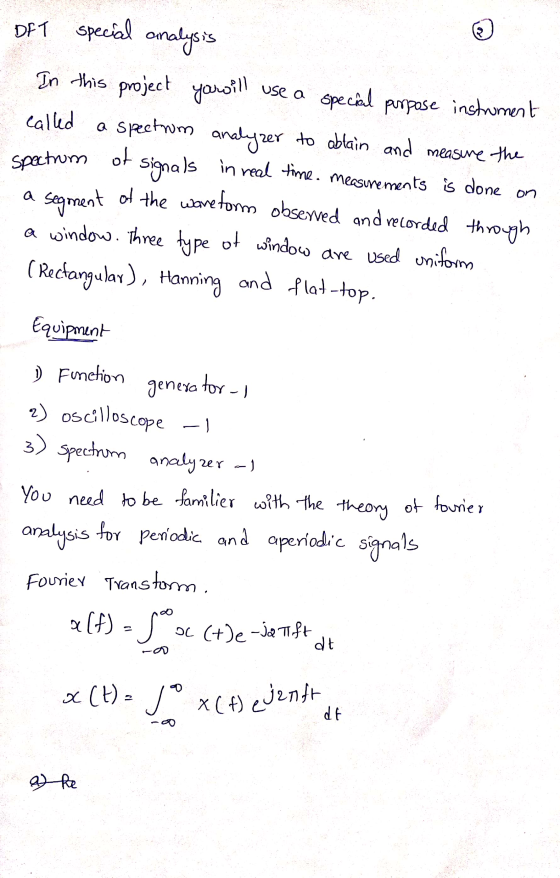 DFT special analysis
②
In this project you will use a special purpose instrument
called a spectrum analyzer to obtain and measure the
spectrum of signals in real time. measurements is done on
a segment of the waveform observed and recorded through
a window. Three type of window are used uniform
(Rectangular), Hanning and flat-top.
Equipment
1) Function generator - 1
2) oscilloscope - 1
3) spectrum analyzer - 1
You need to be familier with the theory of fourier
analysis for periodic and aperiodic signals
Fourier Transform.
x(f) = ∫_{-∞}^{∞} x(t)e^{-j2πft} dt
x(t) = ∫_{-∞}^{∞} x(f) e^{j2πft} dt
a) Re